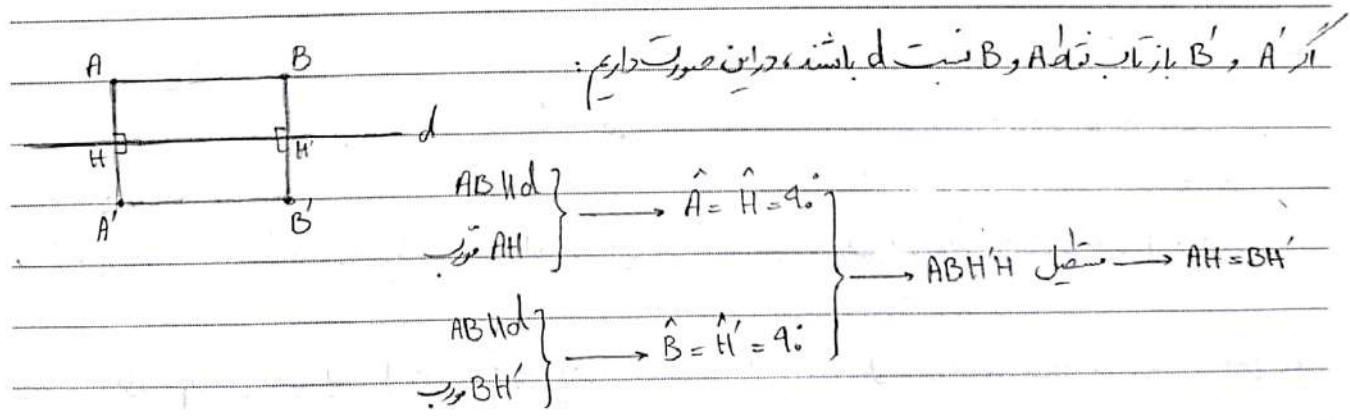 اگر A′ و B′ بازتاب نقاط A و B نسبت d باشند، در این صورت داریم:
A B
H H′ d
A′ B′
AB || d
AH مورب
} → Â = Ĥ = 90°
AB || d
BH′ مورب
} → B̂ = Ĥ′ = 90°
} → ABH′H مستطیل → AH = BH′